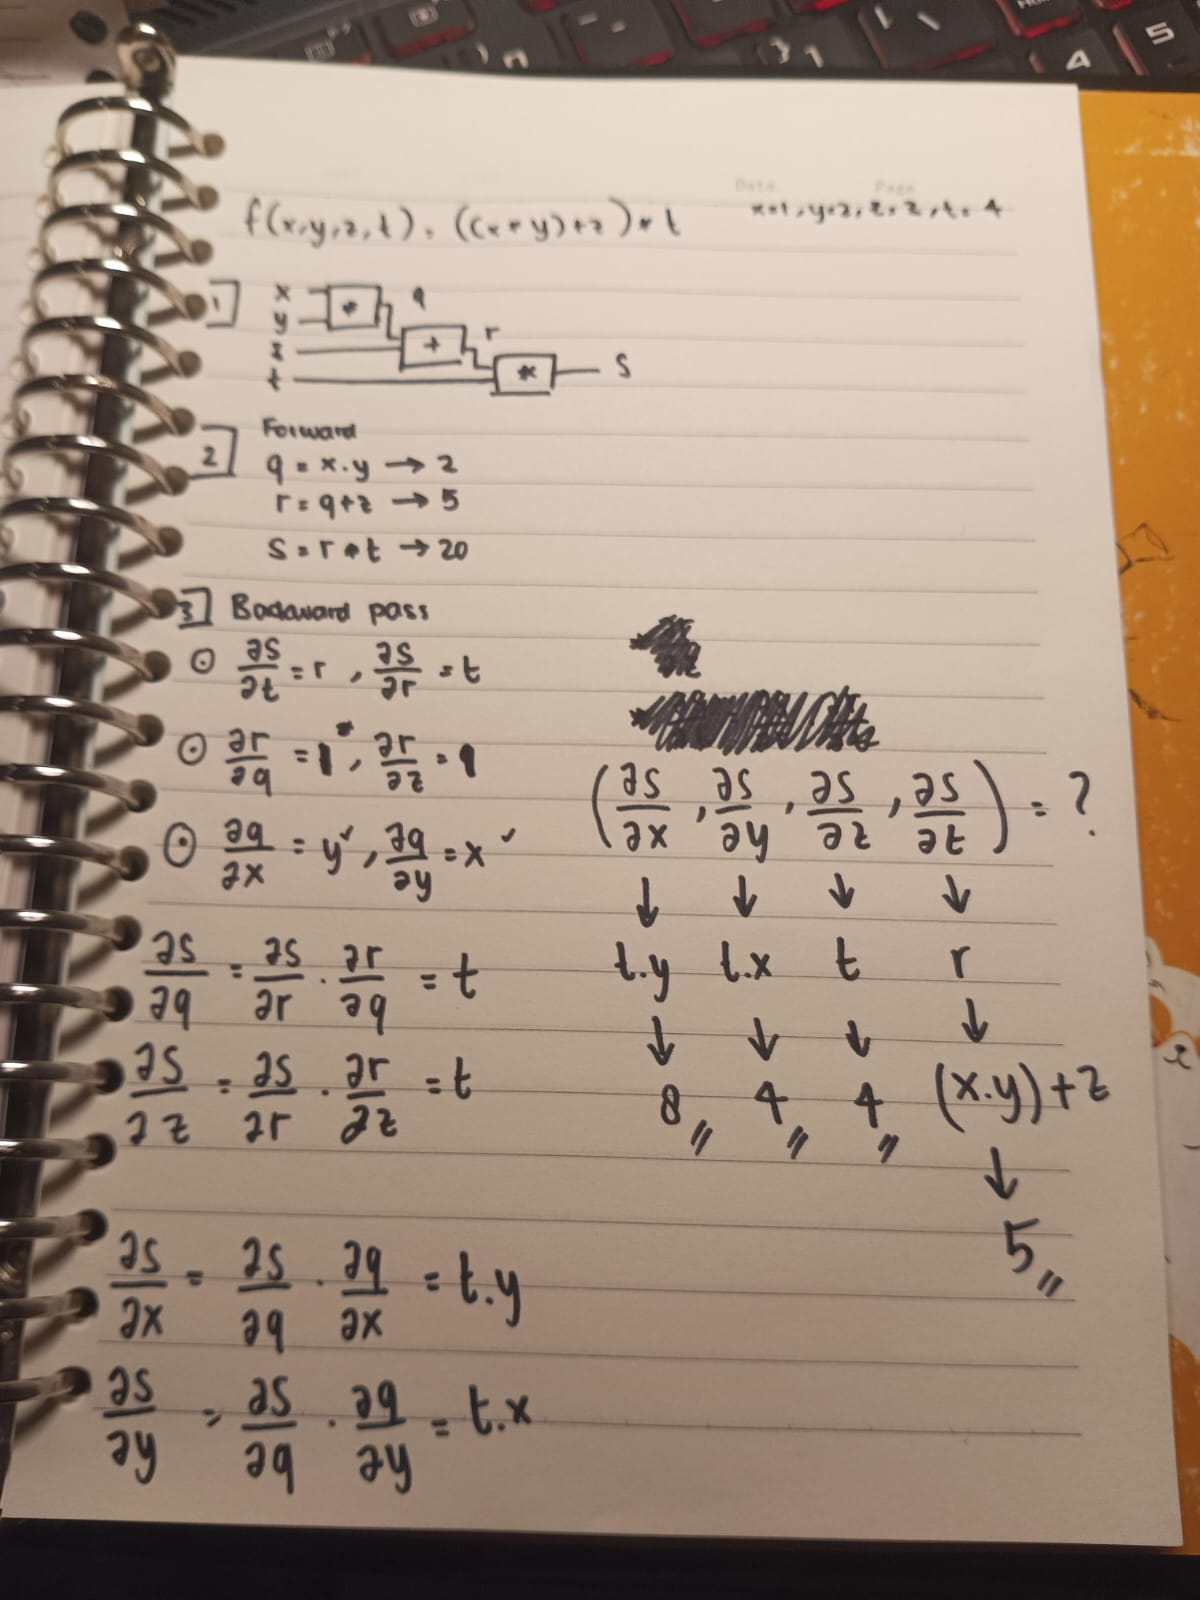 Date: Page:
x=1, y=2, z=2, t=4
f(x,y,z,t) = ((x*y)+z)*t
1
x
y
z
t
*
q
+
r
*
S
2
Forward
q = x.y → 2
r = q+z → 5
S = r*t → 20
3 Backward pass
⊙ ∂S/∂t = r, ∂S/∂r = t
⊙ ∂r/∂q = 1, ∂r/∂z = 1
⊙ ∂q/∂x = y✓, ∂q/∂y = x✓
∂S/∂q = ∂S/∂r . ∂r/∂q = t
∂S/∂z = ∂S/∂r . ∂r/∂z = t
∂S/∂x = ∂S/∂q . ∂q/∂x = t.y
∂S/∂y = ∂S/∂q . ∂q/∂y = t.x
(∂S/∂x, ∂S/∂y, ∂S/∂z, ∂S/∂t) = ?
↓ ↓ ↓ ↓
t.y t.x t r
↓ ↓ ↓ ↓
8,, 4,, 4,, (x.y)+z
↓
5,,